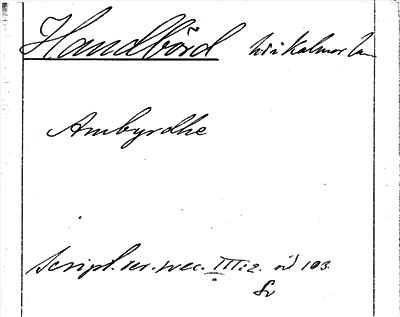 Handbörd hd i Kalmar län
Ambyrdhe
Script. rer. svec. III:2. sid 103.
Sv